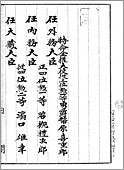 特命全權大使從四位勲一等男爵幣原喜重郎
任外務大臣
正四位勲一等 若槻禮次郎
任内務大臣
從四位勲二等 濱口雄幸
任大藏大臣